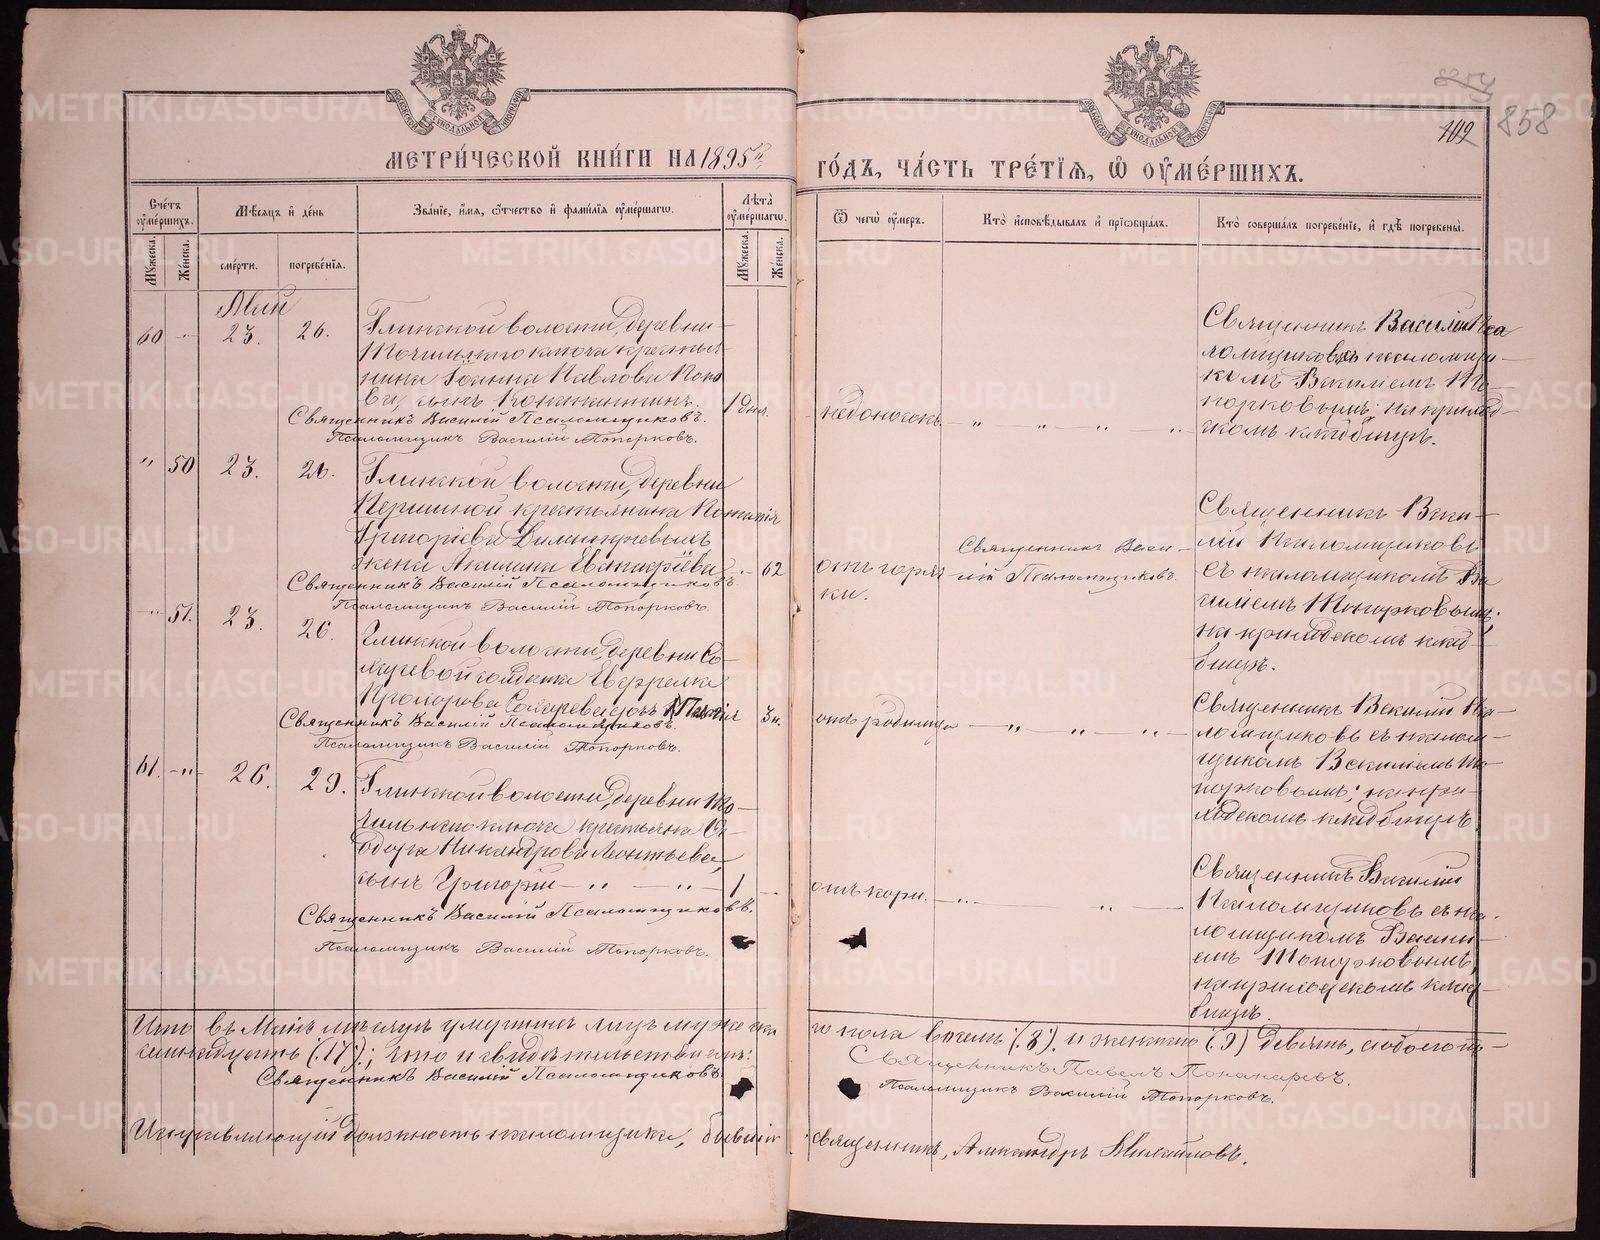 МЕТРИ́ЧЕСКОЙ КНИ́ГИ НА 1895й
ГО́ДЪ, ЧА́СТЬ ТРЕ́ТІѦ, Ѽ ОУ҆МЕ́РШИХЪ.
112 858
Сче́тъ оу҆ме́ршихъ.
Мѣ́сяцъ и҆ де́нь
Зва́ніе, и҆́мя, ѻ҆́тчество и҆ фами́лія оу҆ме́ршагѡ.
Лѣ́та оу҆ме́ршагѡ.
Мꙋ́жеска. Же́нска.
сме́рти. погребе́нія.
Мꙋ́жеска. Же́нска.
Ѿ чегѡ̀ оу҆́меръ.
Кто̀ и҆сповѣ́дывалъ и҆ прїѡбща́лъ.
Кто̀ соверша́лъ погребе́ніе, и҆ гдѣ̀ погребены̀.
Май
60 -"- 23. 26.
Глинской волости, деревни
Точильнаго ключа крестья-
нина Іоанна Павлова Попо
ва сынъ Константинъ.
1 дня.
Священникъ Василій Псаломщиковъ.
Псаломщикъ Василій Топорковъ.
недоносокъ.
" " " "
Священникъ Василій Пса
ломщиковъ съ псаломщи-
комъ Василіемъ То-
порковымъ; на приход-
скомъ кладбищѣ.
" 50 23. 26.
Глинской волости, деревни
Першиной крестьянина
Григоріева
жена
62
Священникъ Василій Псаломщиковъ
Псаломщикъ Василій Топорковъ.
отъ горяч
ки.
Священникъ Васи-
лій Псаломщиковъ.
Священникъ Васи-
лій Псаломщиковъ
съ псаломщикомъ Ва
силіемъ Топорковымъ;
на приходскомъ клад-
бищѣ.
-"- 51. 23. 26.
Глинской волости, деревни Со-
харевой солдатка
Прохорова Сохарева дочь
3 н.
Священникъ Василій Псаломщиковъ.
Псаломщикъ Василій Топорковъ.
отъ родимца
- " - " - " -
Священникъ Василій Пса-
ломщиковъ съ псалом-
щикомъ Василіемъ То-
порковымъ; на при-
ходскомъ кладбищѣ.
61. -"- 26. 29.
Глинской волости, деревни То-
чильнаго ключа крестьянина Ѳе-
дора Никандрова Леонтьева,
сынъ Григорій - " - " -
1
Священникъ Василій Псаломщиковъ.
Псаломщикъ Василій Топорковъ.
отъ кори.
- " - " -
Священникъ Василій
Псаломщиковъ съ пса-
ломщикомъ Василі-
емъ Топорковымъ,
на приходскомъ клад-
бищѣ.
Итого въ Маѣ мѣсяцѣ умершихъ лицъ мужеска
го пола восемь (8) и женскаго (9) девять, обоего по-
семнадцать (17); что и свидѣтельствуемъ:
Священникъ Василій Псаломщиковъ.
Священникъ Павелъ Понамаревъ.
Псаломщикъ Василій Топорковъ.
Исправляющій должность псаломщика, бывшій
священникъ, Александръ Михайловъ.